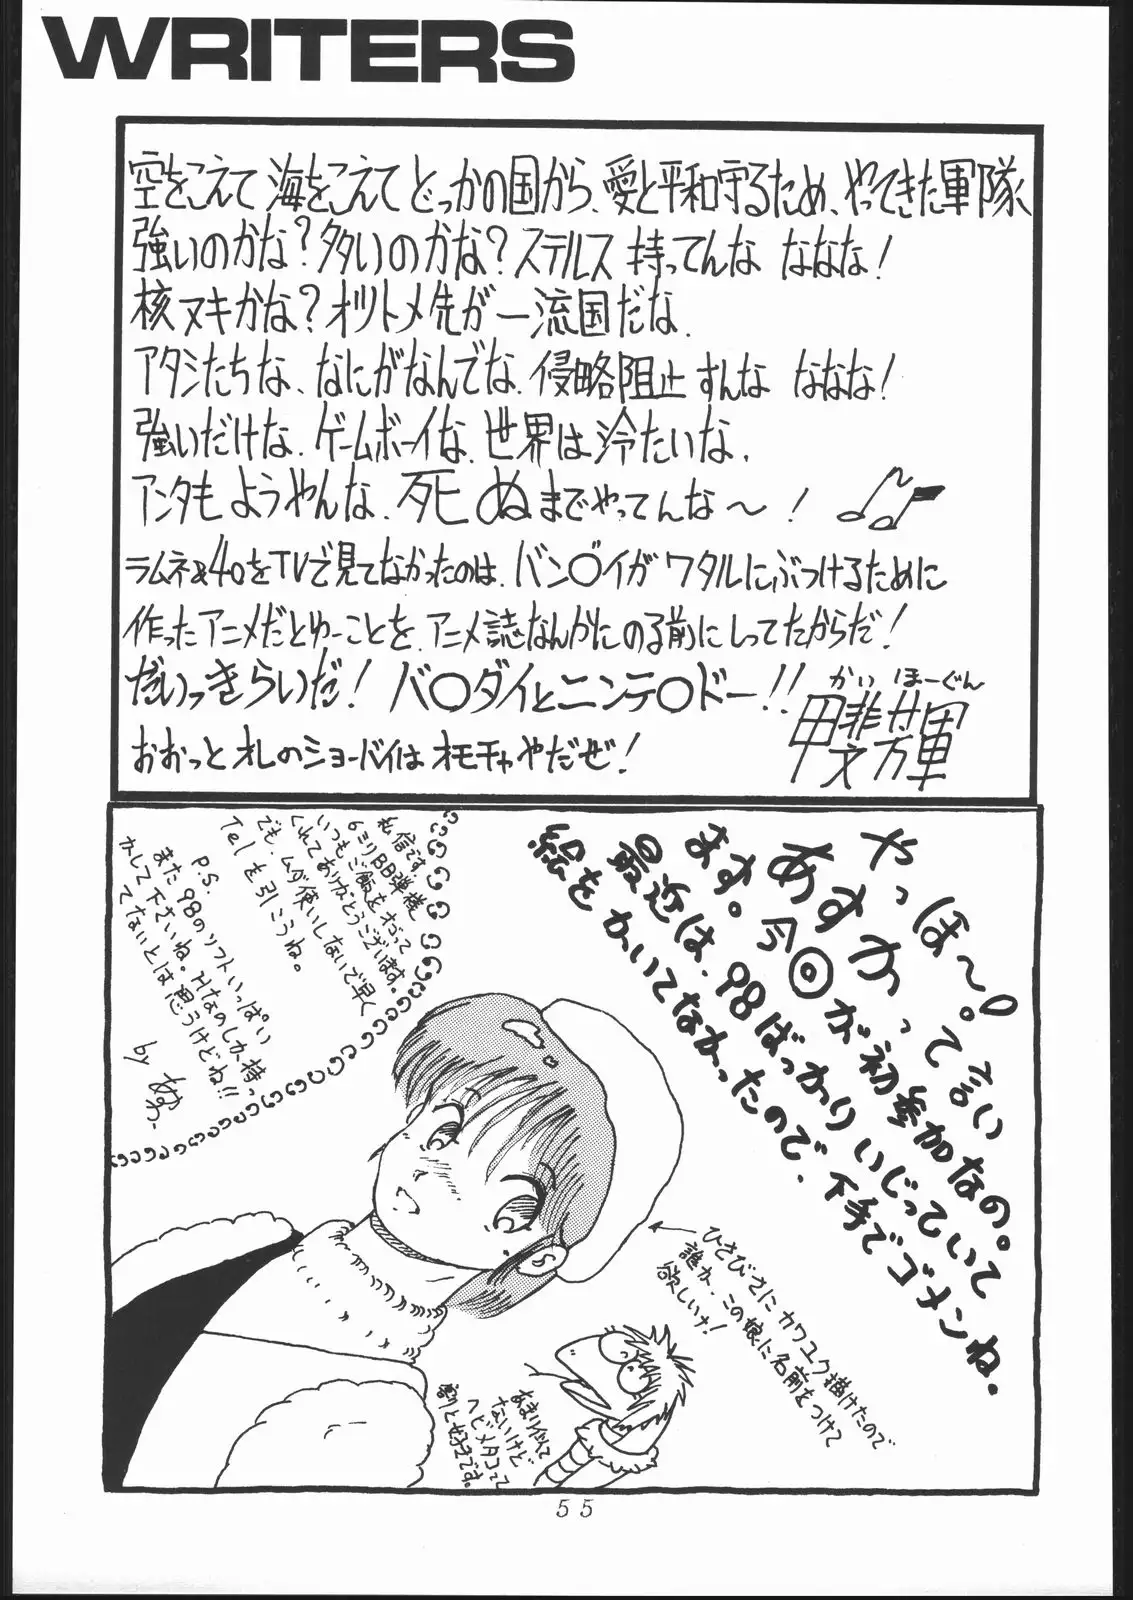 WRITERS
空をこえて 海をこえて どっかの国から、愛と平和守るため、やってきた軍隊
強いのかな?多いのかな?ステルス 持ってんな ななな!
核ヌキかな?オソトメ先が一流国だな.
アタシたちな、なにがなんでな.侵略阻止すんな ななな!
強いだけな.ゲームボーイな.世界は冷たいな.
アンタも ようやんな.死ぬまでやってんな〜!
ラムネ&40をTVで見てなかったのは、バン〇イが ワタルにぶつけるために
作ったアニメだとゆーことを、アニメ誌なんかにのる前にしってたからだ!
だいっきらいだ!バ〇ダイとニンテ〇ドー!!
かい ほーぐん
おおっと オレのショーバイは オモチャやだぜ!
やっほ〜!
あすかって言い
ます。今◎が初参加なの。
最近は、98ばっかりいじっていて
絵をかいてなかったので、下手でゴメンね.
私信です
6ミリBB弾様
いつもご飯をおごって
くれてありがとうございます。
でも、ムダ使いしないで早く
Telを引こうね。
P.S.
また98のソフトいっぱい
かして下さいね。Hなのしか持っ
てないとは思うけどね!!
by あすか
ひさびさに カワユク描けたので
誰か、この娘に名前をつけて
欲しいナ!
あまり似て
ないけど
ヘビメタコって
割と好きです。
55